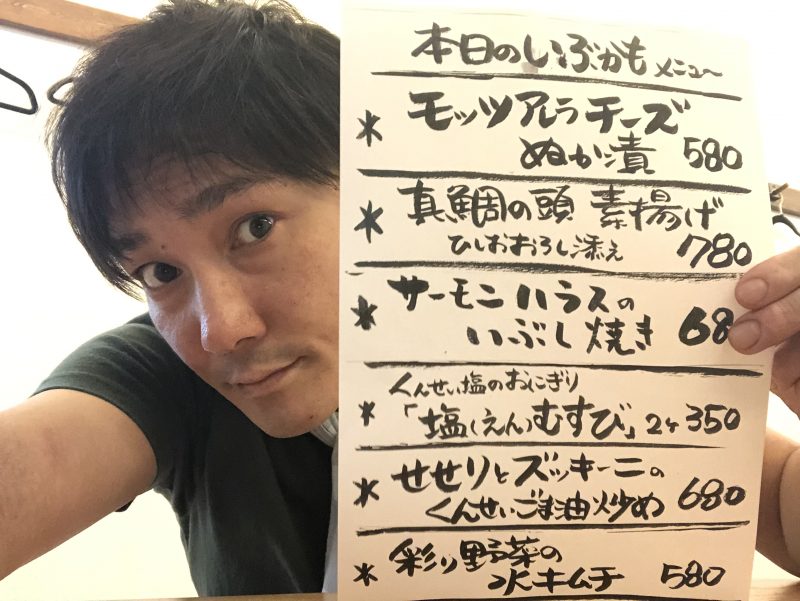 本日のいぶかも メニュー
* モッツアレラチーズ
ぬか漬 580
* 真鯛の頭 素揚げ
ひしおおろし添え 780
* サーモンハラスの
いぶし焼き 68
くんせい塩のおにぎり
* 「塩(えん)むすび」2ケ 350
* せせりとズッキーニの
くんせいごま油炒め 680
* 彩り野菜の
水キムチ 580